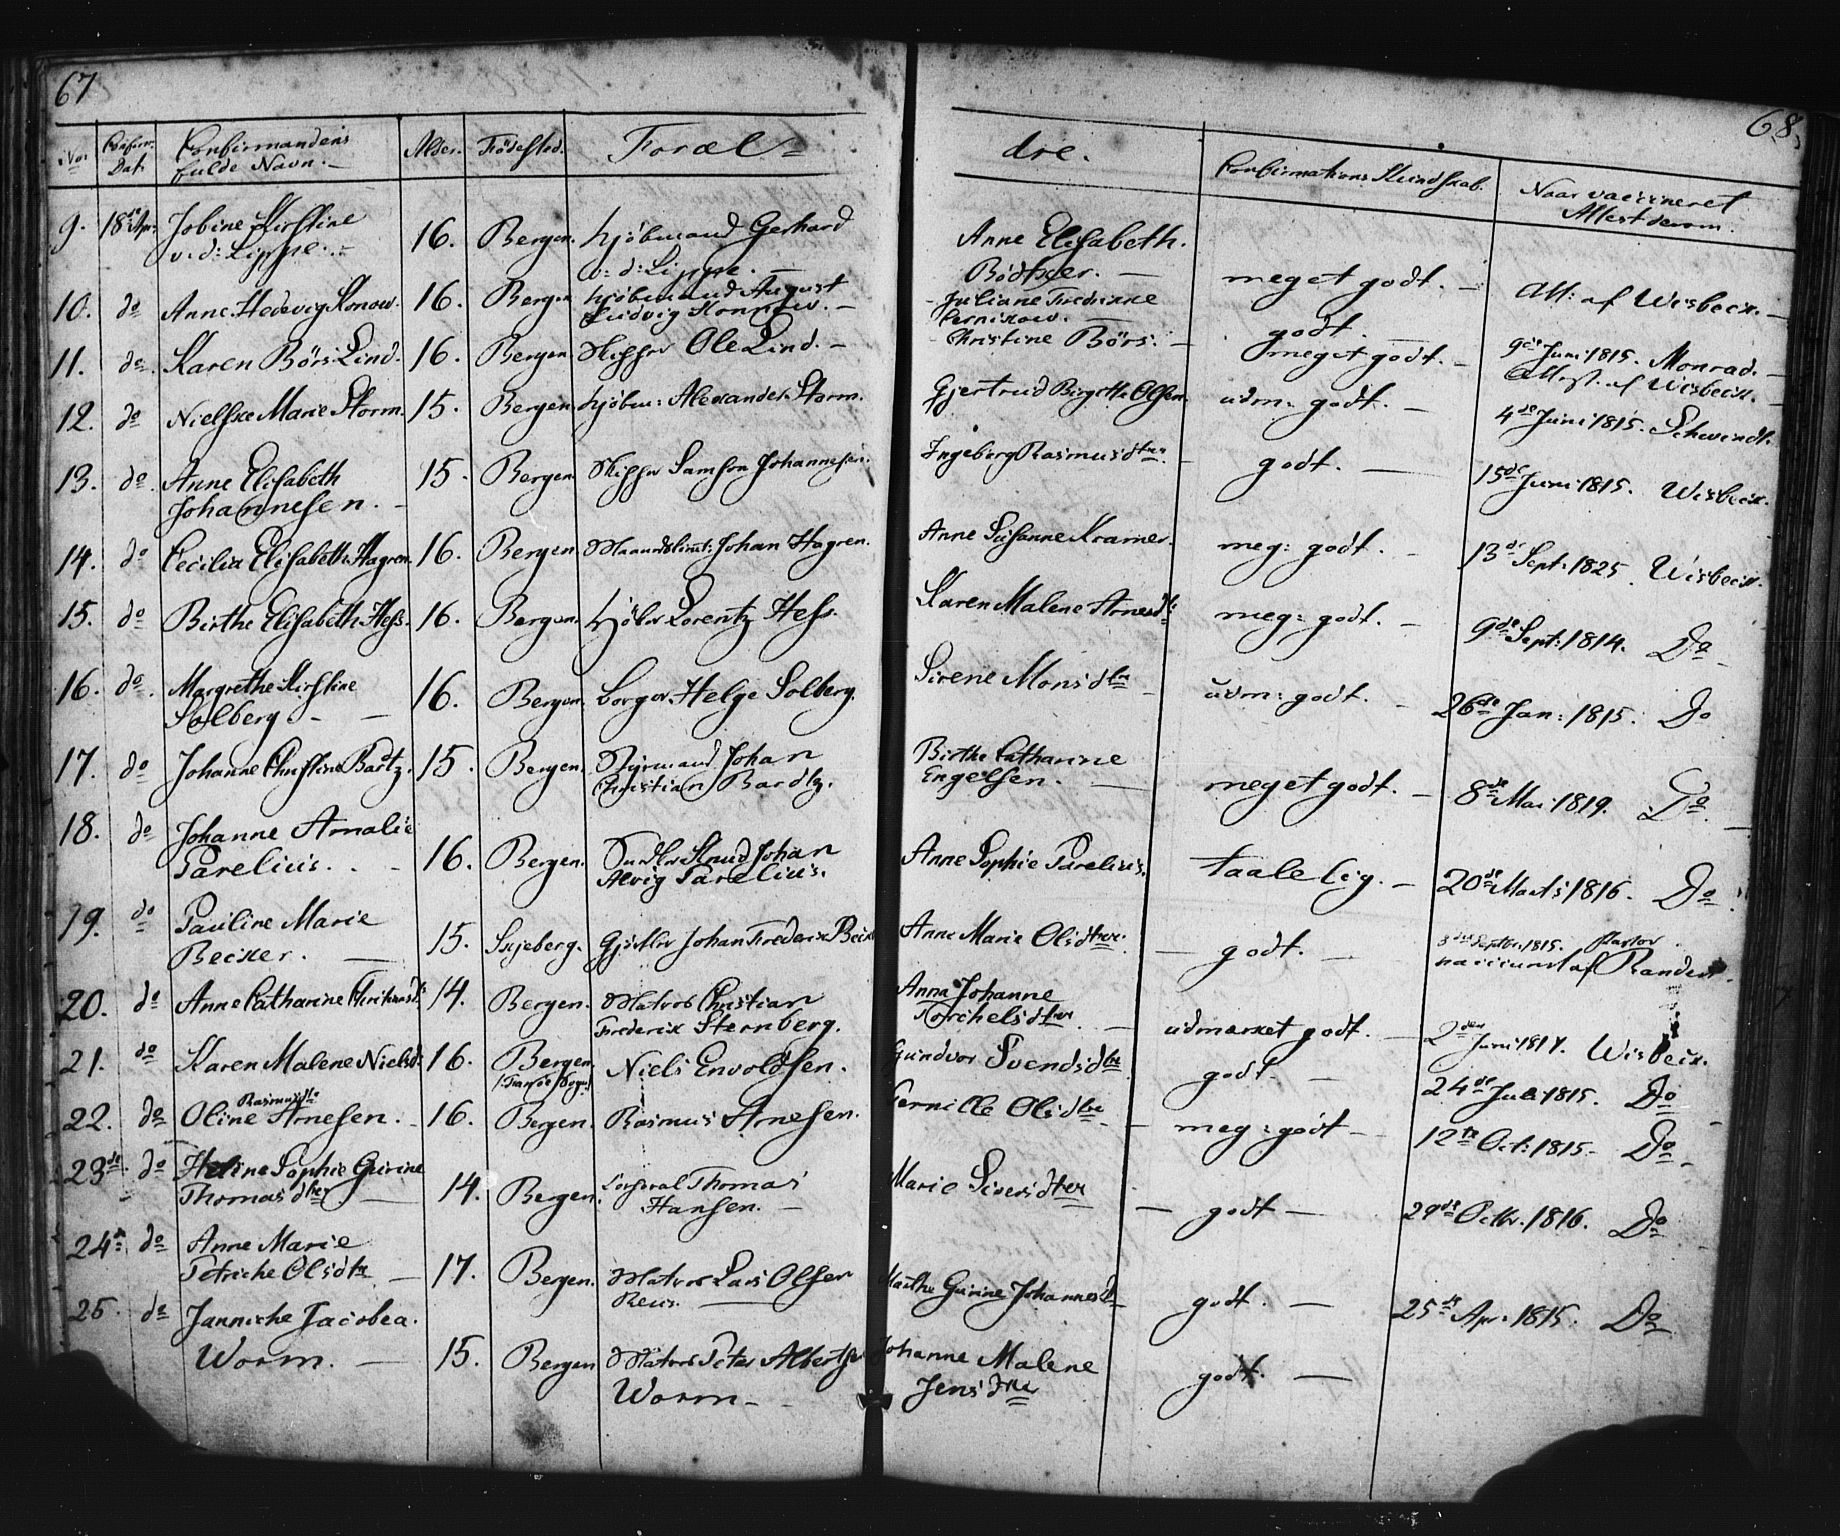 67
68.
No. Confirm: Dat. Confirmandens fulde Navn. Alder. Födested. Foræl= dre. Confirmations Kundskab. Naar vaccineret Attest derom.
9. 18de Apr: Jobine Kirstine 16. Bergen. Kjöbmand Gerhard Anne Elisabeth.
v: d: Lippe. v: d: Lippe. Bödtker. meget godt. Att: af Wisbeck.
10. do Anne Hedevig Konow. 16. Bergen Kjöbmand August Juliane Fredrikke
Ludvig Konnow. Cernikow. godt. 9de Juni 1815. Monrad.
11. do Karen Börs Lind. 16. Bergen Skipper Ole Lind. Christine Börs. meget godt. Attest. af Wisbeck.
12. do Nielske Marie Storm. 15. Bergen Kjöbm: Alexander Storm. Gjertrud Birgitte Olsen. udm: godt. 4de Juni 1815. Schwindt.
13. do Anne Elisabeth 15. Bergen Skipper Samson Johannesen. Ingeborg Rasmusdtter godt. 15de Juni 1815. Wisbeck.
Johannesen.
14. do Cecilia Elisabeth Hagren 16. Bergen Johan Hagren. Anne Susanne Kramer. meg: godt. 13de Sept: 1825. Wisbeck.
15. do Birthe Elisabeth Hess. 16. Bergen. Lorentz Hess. Karen Malene Arnesdtr meg: godt. 9de Sept: 1814. Do
16. do Margrethe Kirstine 16. Bergen. Borger Helge Solberg. Sirene Monsdtr udm: godt. 26de Jan: 1815. Do
Solberg
17. do Johanne Christine Bartz. 15. Bergen. Styrmand Johan Birthe Catharine
Christian Bardtz. Engelsen. meget godt. 8de Mai 1819. Do
18. do Johanne Amalie 16. Bergen. Knud Johan Anne Sophie Parelius. taalelig. 20de Marts 1816. Do
Parelius. Alvig Parelius.
19. do Pauline Marie 15. Skjeberg. Johan Frederik Beck Anne Marie Olsdtter. godt. 3die Septbr. 1815. Pastor
Becker. vaccineret af Randers.
20. do Anne Catharine 14. Bergen. Matros Christian Anna Johanne
Frederik Sternberg. Torchelsdtter udmærket godt. 2den Juni 1817. Wisbeck.
21. do Karen Malene Nielsd. 16. Bergen Niels Envoldsen. Gundvor Svendsdtr godt. 24de 1815. Do
22. do Rasmusdtr
Oline Arnesen. 16. Bergen. Rasmus Arnesen. Pernille Olsdtr meg: godt 12te Oct: 1815. Do
23de do Heline Sophie Gurine 14. Bergen. Corporal Thomas Marie Siversdtter godt 29de Octbr. 1816. Do
Thomasdtter Hansen.
24de do Anne Marie 17. Bergen. Matros Lars Olsen Marthe Gurine Johannesd. godt. 25de Apr. 1815. Do
Petriche Olsdtr
25. do Jannicke Jacobea 15. Bergen Matros Peter Albertsen Johanne Malene godt.
Worm. Worm Jensdtter